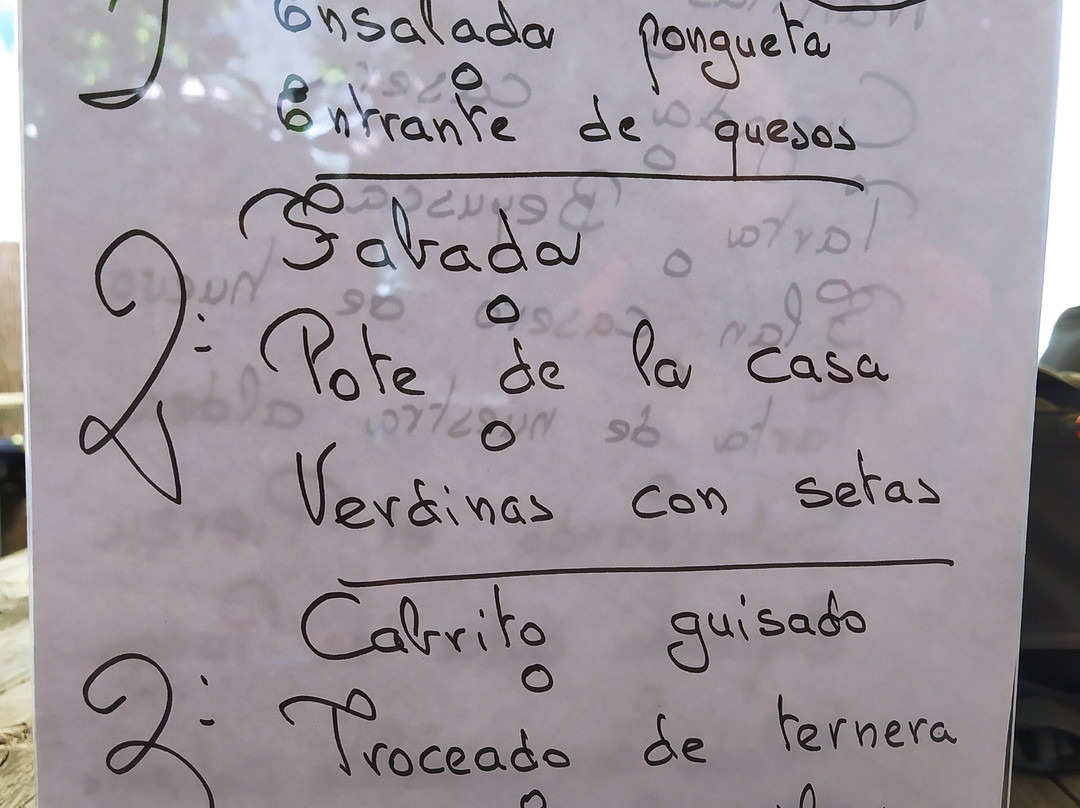 Ensalada pongueta
o
Entrante de quesos
Fabada
o
2: Pote de la casa
o
Verdinas con setas
Cabrito guisado
o
3: Troceado de ternera
o